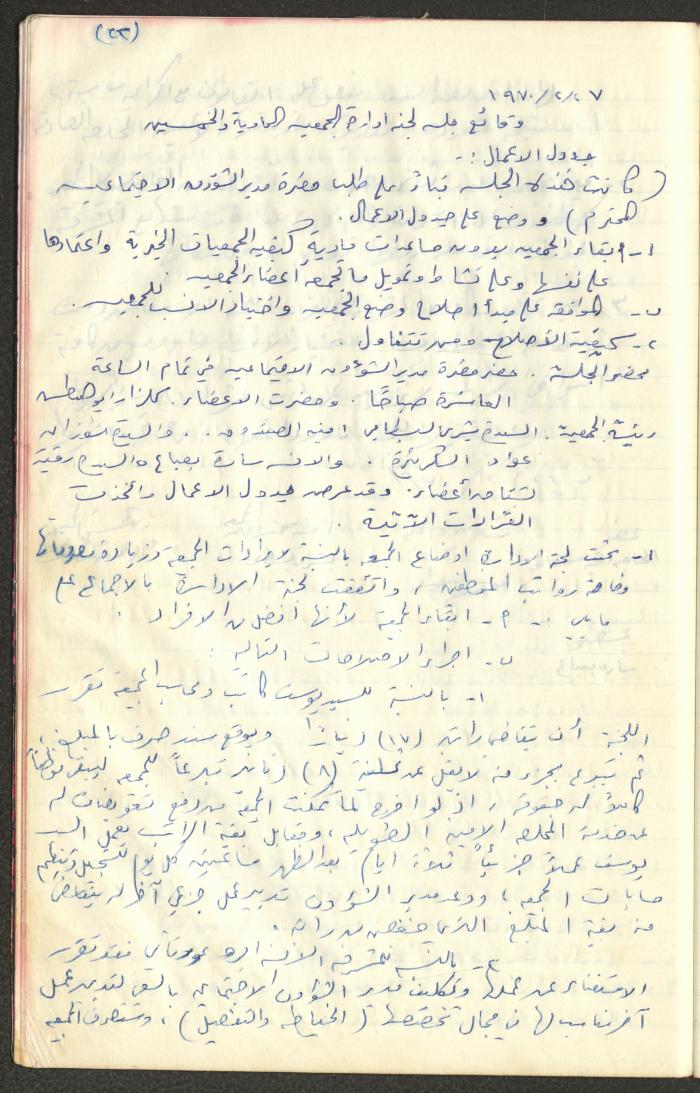 (٢٣)
١٩٧٠/٢/٢٧
وقائع جلسه لجنة ادارة الجمعيه الحادية والخمسين
جدول الاعمال :-
( كانت هذه الجلسه بناءً على طلب حضرة مدير الشؤون الاجتماعيه
المحترم ) ووضع على جدول الاعمال .
١- ابقاء الجمعيه بدون مساعدات مادية كبقيه الجمعيات الخيرية واعتمادها
على نفسها وعلى نشاط وتمويل ما تجمعه أعضاء الجمعيه
٢- الموافقه على مبدأ اصلاح وضع الجمعيه واختيار الانسب للجمعيه .
٣- كيفية الأصلاح ومن تتناول .
محضر الجلسة . حضر حضرة مدير الشؤون الاجتماعيه في تمام الساعة
العاشرة صباحًا . وحضرت الاعضاء .
رئيسة الجمعية . السيدة بشرى امينه الصندوق . والسيدة سوزان
عواد السكرتيرة . والانسه سارة بعباع والسيدة رقية
أعضاء . وقد عرض جدول الاعمال واتخذت
القرارات الآتية .
١- بحثت لجنة الادارة اوضاع الجمعيه بالنسبة لايرادات الجمعيه وزيادة مصروفاتها
وخاصة رواتب الموظفين ، واتفقت لجنة الادارة بالاجماع على
ما يلي :- ٢- ابقاء الجمعية لأنها افضل من الافراد .
ب- اجراء الاصلاحات التاليه :
١- بالنسبة للسيد يوسف كاتب ومحاسب الجمعيه تقرر
اللجنة أن يتقاضى راتبه (١٧) دينارًا ويوقع سند صرف بالمبلغ ،
ثم يتبرع بجزء منه لا يقل عن (٨) دنانير تبرعاً للجمعيه ليبقى موظفاً
كاملاً له حقوقه ، اذ لو اخرج لما تمكنت الجمعيه من دفع تعويضات له
عن خدمته المخلصه الامينه الطويله ، ومقابل بقية الراتب يعمل السيد
يوسف عملاً جزئياً ثلاثة ايام بعد الظهر ساعتين كل يوم لتسجيل وتنظيم
حسابات الجمعيه ، ووعد مدير الشؤون تدبير عمل جزئي آخر له يتقاضى
منه بقية المبلغ الذي خفض من راتبه .
بالنسبه للمشرفه الانسه فقد تقرر
الاستغناء عن عملها وتكليف مدير الشؤون الاجتماعيه بالسعي لتدبير عمل
آخر مناسب لها في مجال تخصصها ( الخياطه والتفصيل ) ، وستصرف الجمعيه